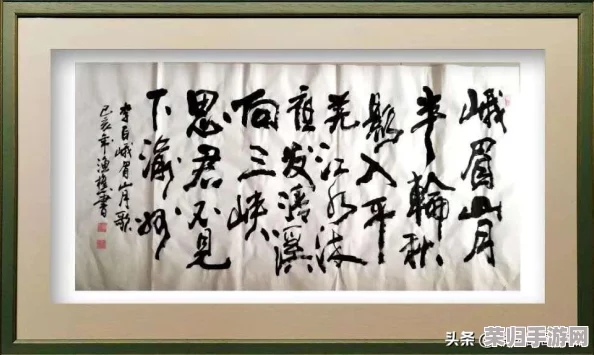 峨眉山月
半輪秋
影入平
羌江水流
夜发清溪
向三峡
思君不见
下渝州
李白峨眉山月歌
己亥年渔樵書
头条
荣归手游网